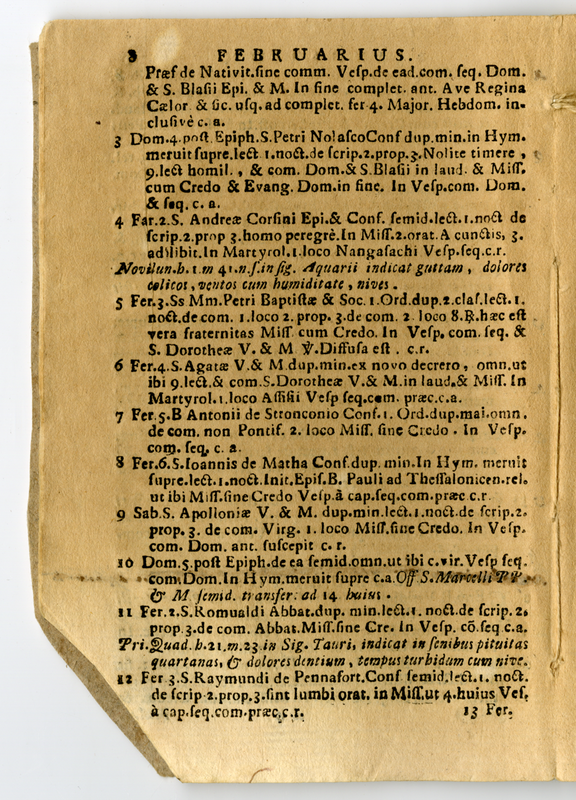 8 FEBRUARIUS.
Præf de Nativit.sine comm. Vesp.de ead.com. seq. Dom.
& S. Blasii Epi. & M. In fine complet. ant. Ave Regina
Cælor & sic. usq. ad complet. fer 4. Major. Hebdom. in-
clusivè c. a.
3 Dom.4.post. Epiph.S.Petri NolascoConf dup.min.in Hym.
meruit supre.lect. 1.noct.de scrip.2.prop.3.Nolite timere ,
9.lect homil. , & com. Dom.& S.Blasii in laud. & Miss.
cum Credo & Evang. Dom.in fine. In Vesp.com. Dom.
& seq. c. a.
4 Far.2.S. Andreæ Corsini Epi.& Conf. semid.lect.1.noct de
scrip.2.prop 3.homo peregrè.In Miss.2.orat.A cunctis, 3.
ad libit.In Martyrol.1.loco Nangasachi Vesp.seq.c.r.
Novilun.h.1.m 41.n.s.in sig. Aquarii indicat guttam , dolores
colicos, ventos cum humiditate , nives .
5 Fer.3.Ss Mm.Petri Baptistæ & Soc.1.Ord.dup.2.clas.lect.1.
noct.de com. 1.loco 2. prop. 3.de com. 2 loco 8.℟.hæc est
vera fraternitas Miss cum Credo. In Vesp. com. seq. &
S. Dorotheæ V. & M ℣.Diffusa est . c.r.
6 Fer.4.S.Agatæ V.& M.dup.min.ex novo decrero, omn.ut
ibi 9.lect.& com.S.Dorotheæ V.& M.in laud.& Miss. In
Martyrol.1.loco Assisii Vesp seq.com. præc.c.a.
7 Fer.5.B Antonii de Stronconio Conf.1. Ord.dup.mai.omn.
de com. non Pontif. 2. loco Miss. sine Credo . In Vesp.
com. seq. c. a.
8 Fer.6.S.Ioannis de Matha Conf.dup. min.In Hym. meruit
supre.lect.1.noct.Init.Epis.B. Pauli ad Thessalonicen.rel.
ut ibi Miss.sine Credo Vesp.à cap.seq.com.præc c.r.
9 Sab.S. Apolloniæ V. & M. dup.min.lect.1.noct.de scrip.2.
prop. 3. de com. Virg. 1. loco Miss.sine Credo. In Vesp.
com. Dom. ant. suscepit c. r.
10 Dom.5.post Epiph.de ea semid.omn.ut ibi c.vir.Vesp seq.
com.Dom.In Hym.meruit supre c.a.Off S.Marcelli PP.
& M. semid. transfer. ad 14 huius .
11 Fer.2.S.Romualdi Abbat.dup. min.lect.1. noct.de scrip.2.
prop.3.de com. Abbat.Miss.sine Cre. In Vesp. cō.seq c.a.
Pri.Quad.h.21.m.23 in Sig. Tauri, indicat in senibus pituitas
quartanas, & dolores dentium , tempus turbidum cum nive.
12 Fer 3.S.Raymundi de Pennafort.Conf semid.lect.1. noct.
de scrip 2.prop.3.sint lumbi orat. in Miss.ut 4.huius Ves.
à cap.seq.com.præc.c.r. 13 Fer.